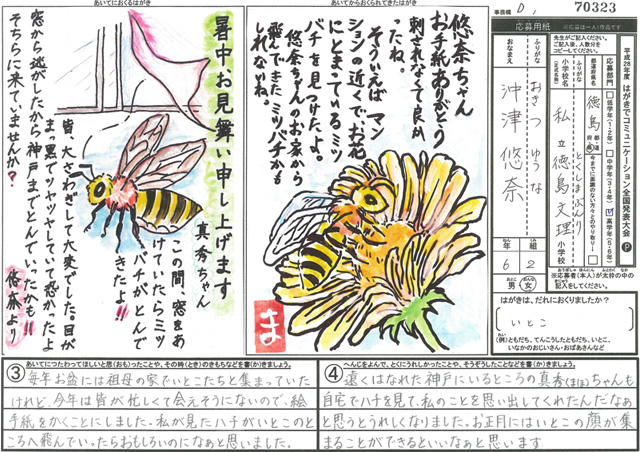 あいてにおくるはがき
暑中お見舞い申し上げます
真秀ちゃん
この間、窓をあ
けていたらミツ
バチがとんで
きたよ!!
皆、大さわぎして大変でした。目が
まっ黒でツヤツヤしていて恐かったよ
窓から逃がしたから神戸までとんでいったかも!!
そちらに来ていませんか?
悠奈より
あいてからおくられてきたはがき
悠奈ちゃん
お手紙ありがとう
刺されなくて良か
ったね。
そういえば マン
ションの近くで、お花
にとまっているミツ
バチを見つけたよ。
悠奈ちゃんのお家から
飛んできたミツバチかも
しれないね。
ま
事務欄 D1
70323
応募用紙
平成28年度 はがきでコミュニケーション全国発表大会 P
先生がご記入ください。
ご記入後、人数分を
コピーしてください。
応募部門
低学年(1・2年)
中学年(3・4年)
高学年(5・6年)
今までに面識のない方々とのやり取り
都道府県名
徳島 都道府県
ふりがな
とくしまぶんり
小学校名
私立徳島文理 小学校
ふりがな
おきつ ゆうな
おなまえ
沖津 悠奈
6 年
2 組
男 女
※応募者(本人)が太枠の中の
記入をしてください。
はがきは、だれにおくりましたか?
(いとこ)
(例)ともだち、てんこうしたともだち、いとこ、
いなかのおじいさん・おばあさんなど
③ あいてにつたわってほしいと思(おも)ったことや、その時(とき)のきもちなどを書(か)きましょう。
毎年お盆には祖母の家でいとこたちと集まっていた
けれど、今年は皆が忙しくて会えそうにないので、絵
手紙をかくことにしました。私が見たハチがいとこのと
ころへ飛んでいったらおもしろいのになぁと思いました。
④ へんじをよんで、とくにうれしかったことや、そうぞうしたことなどを書(か)きましょう。
遠くはなれた神戸にいるところの真秀(まほ)ちゃんも
自宅でハチを見て、私のことを思い出してくれたんだなぁ
と思うとうれしくなりました。お正月にはいとこの顔が集
まることができるといいなぁと思います